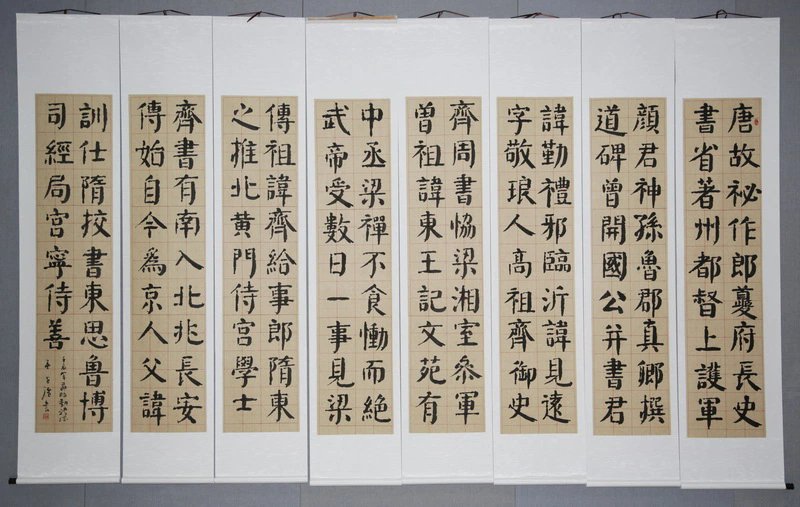 唐故祕作郎夔府長史
書省著州都督上護軍
顏君神孫魯郡真卿撰
道碑曾開國公并書君
諱勤禮邪臨沂諱見遠
字敬琅人高祖齊御史
齊周書恊梁湘室叅軍
曾祖諱東王記文苑有
中丞梁禪不食慟而絶
武帝受數日一事見梁
傳祖諱齊給事郎隋東
之推北黄門侍宫學士
齊書有南入北兆長安
傳始自今爲京人父諱
訓仕隋挍書東思魯博
司經局宫寧侍善